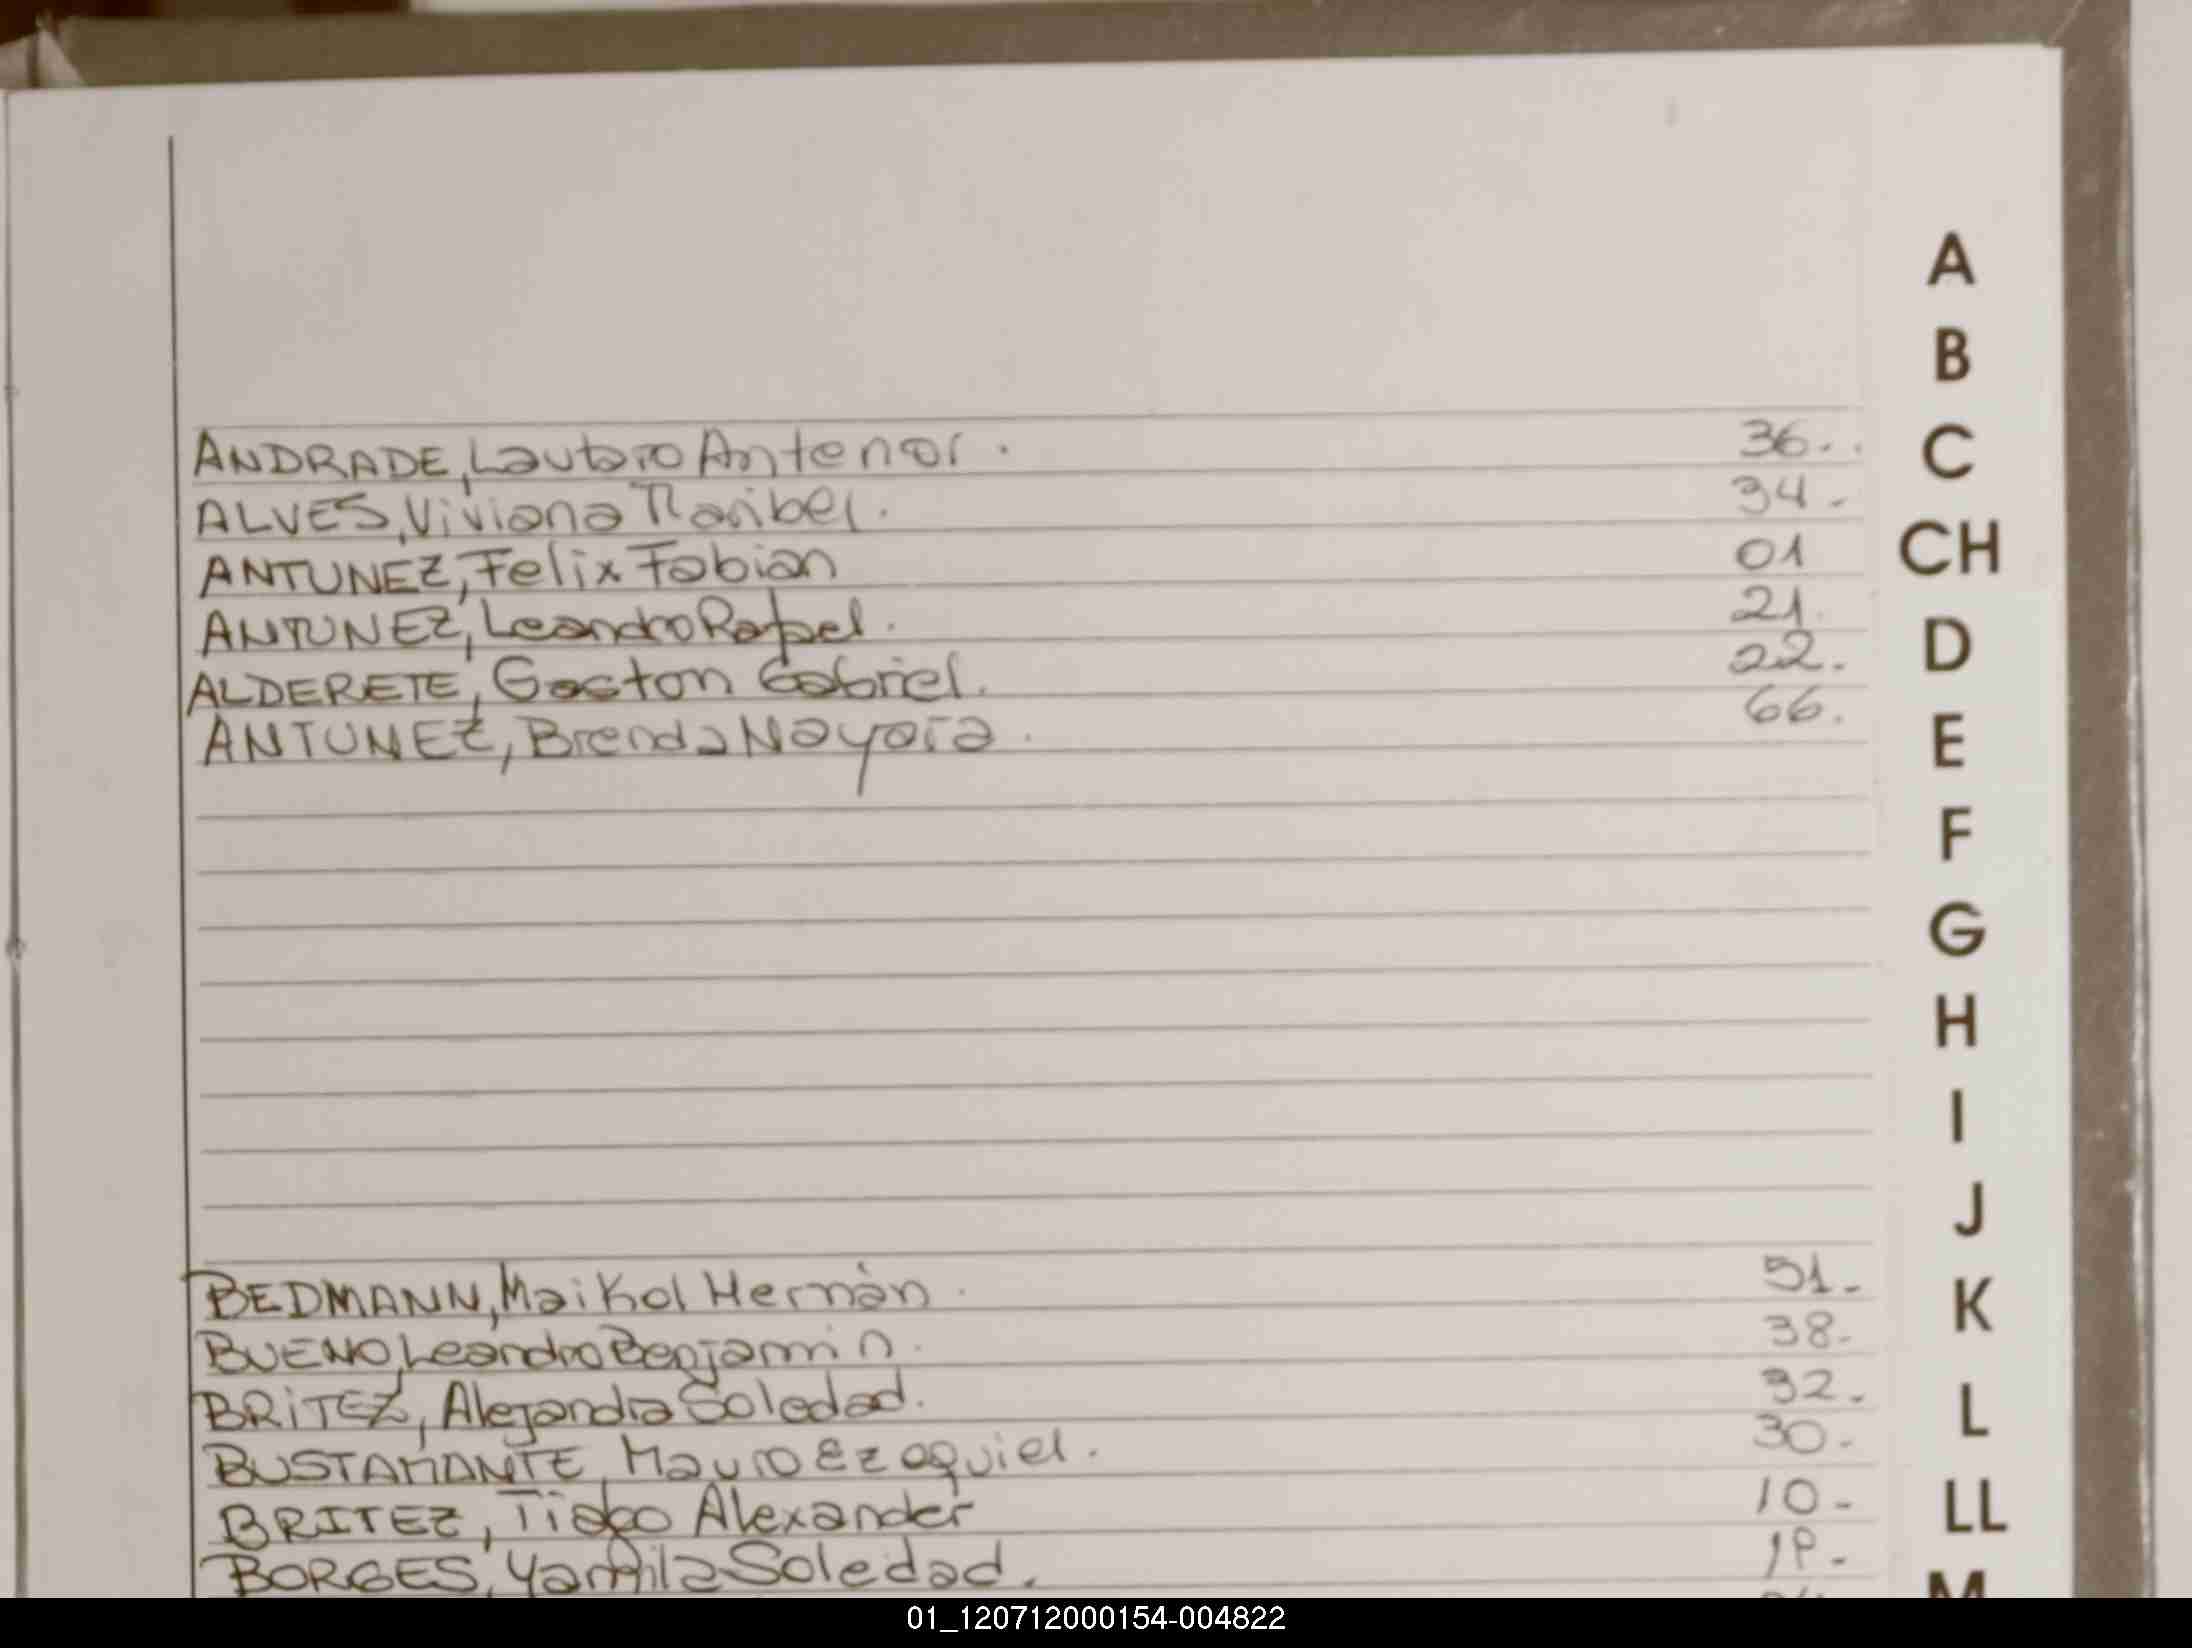 ANDRADE, Lautaro Antenor. 36.
ALVES, Viviana Maribel. 34.
ANTUNEZ, Felix Fabian 01
ANTUNEZ, Leandro Rafael. 21.
ALDERETE, Gaston Gabriel. 22.
ANTUNEZ, Brenda Nayara. 66.
BEDMANN, Maikol Hernán. 51.
BUENO, Leandro Benjamin. 38.
BRITEZ, Alejandra Soledad. 32.
BUSTAMANTE, Mauro Ezequiel. 30.
BRITEZ, Tiago Alexander 10.
BORGES, Yamila Soledad.
A
B
C
CH
D
E
F
G
H
I
J
K
L
LL
M
01_120712000154-004822